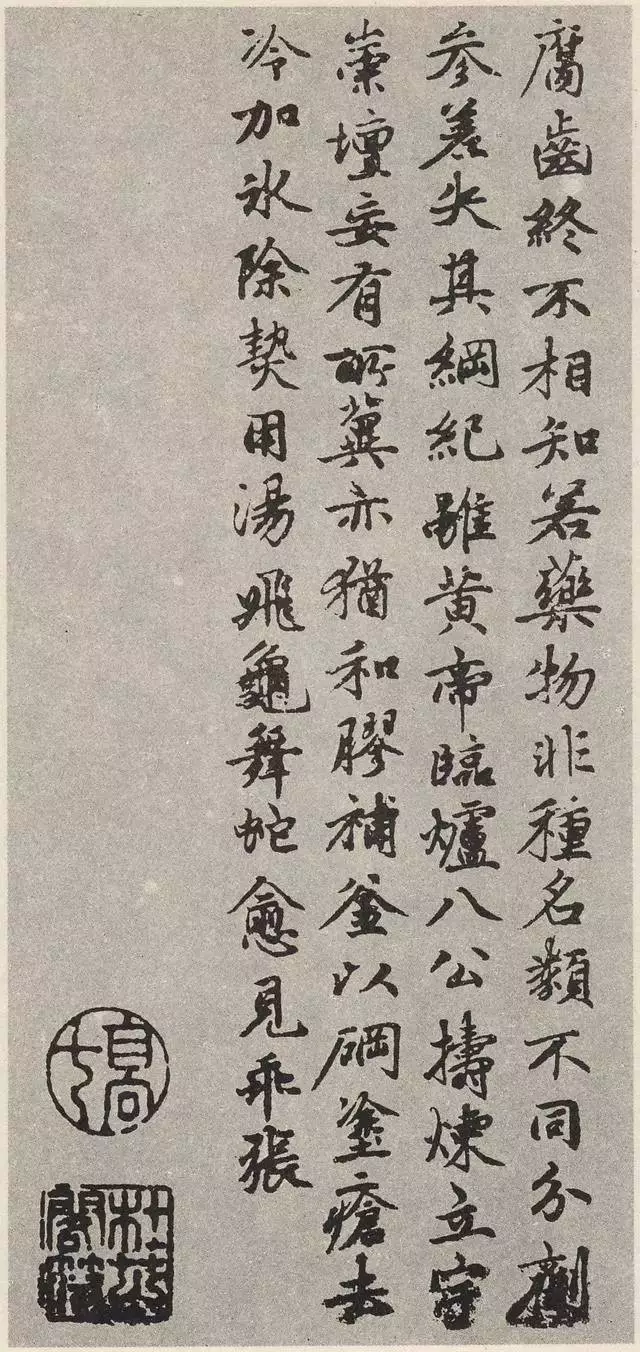 腐齒終不相知若藥物非種名類不同分劑
參差失其綱紀雖黃帝臨爐八公擣煉立宇
崇壇妄有所冀亦猶和膠補釜以碙塗瘡去
冷加冰除熱用湯飛龜舞蛇愈見乖張